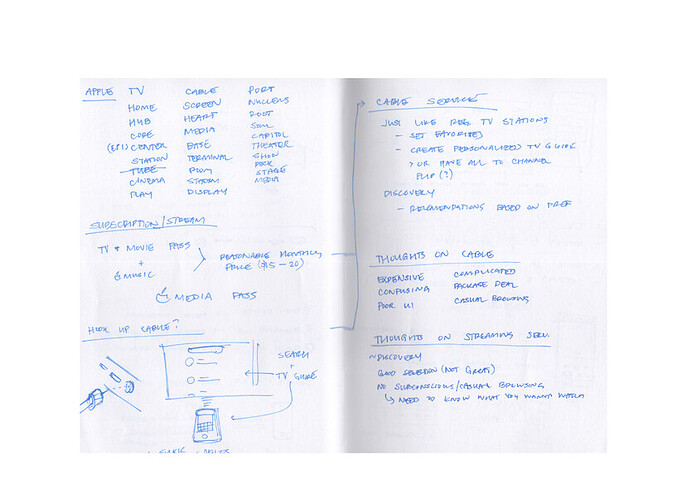 APPLE TV CABLE PORT
HOME SCREEN NUCLEUS
HUB HEART ROOT
CORE MEDIA SOUL
CENTER BASE CAPITOL
STATION TERMINAL THEATER
TUBE SHOW
CINEMA STADIUM DOCK
PLAY DISPLAY STAGE
MEDIA
SUBSCRIPTION/STREAM
TV & MOVIE PASS
+
MUSIC
REASONABLE MONTHLY
PRICE ($15-20)
MEDIA PASS
HOOK UP CABLE?
SEARCH
+
TV GUIDE
CABLE SERVICE
JUST LIKE REAL TV STATIONS
- SET FAVORITES
- CREATE PERSONALIZED TV GUIDE
> OR HAVE ALL TO CHANNEL
FLIP (?)
DISCOVERY
- RECOMENDATIONS BASED ON PREF
THOUGHTS ON CABLE
EXPENSIVE COMPLICATED
CONFUSING PACKAGE DEAL
POOR UI CASUAL BROWSING
THOUGHTS ON STREAMING SERV.
~DISCOVERY
GOOD SELECTION (NOT GREAT)
NO SUBCONSCIOUS/CASUAL BROWSING
↳ NEED TO KNOW WHAT YOU WANNA WATCH